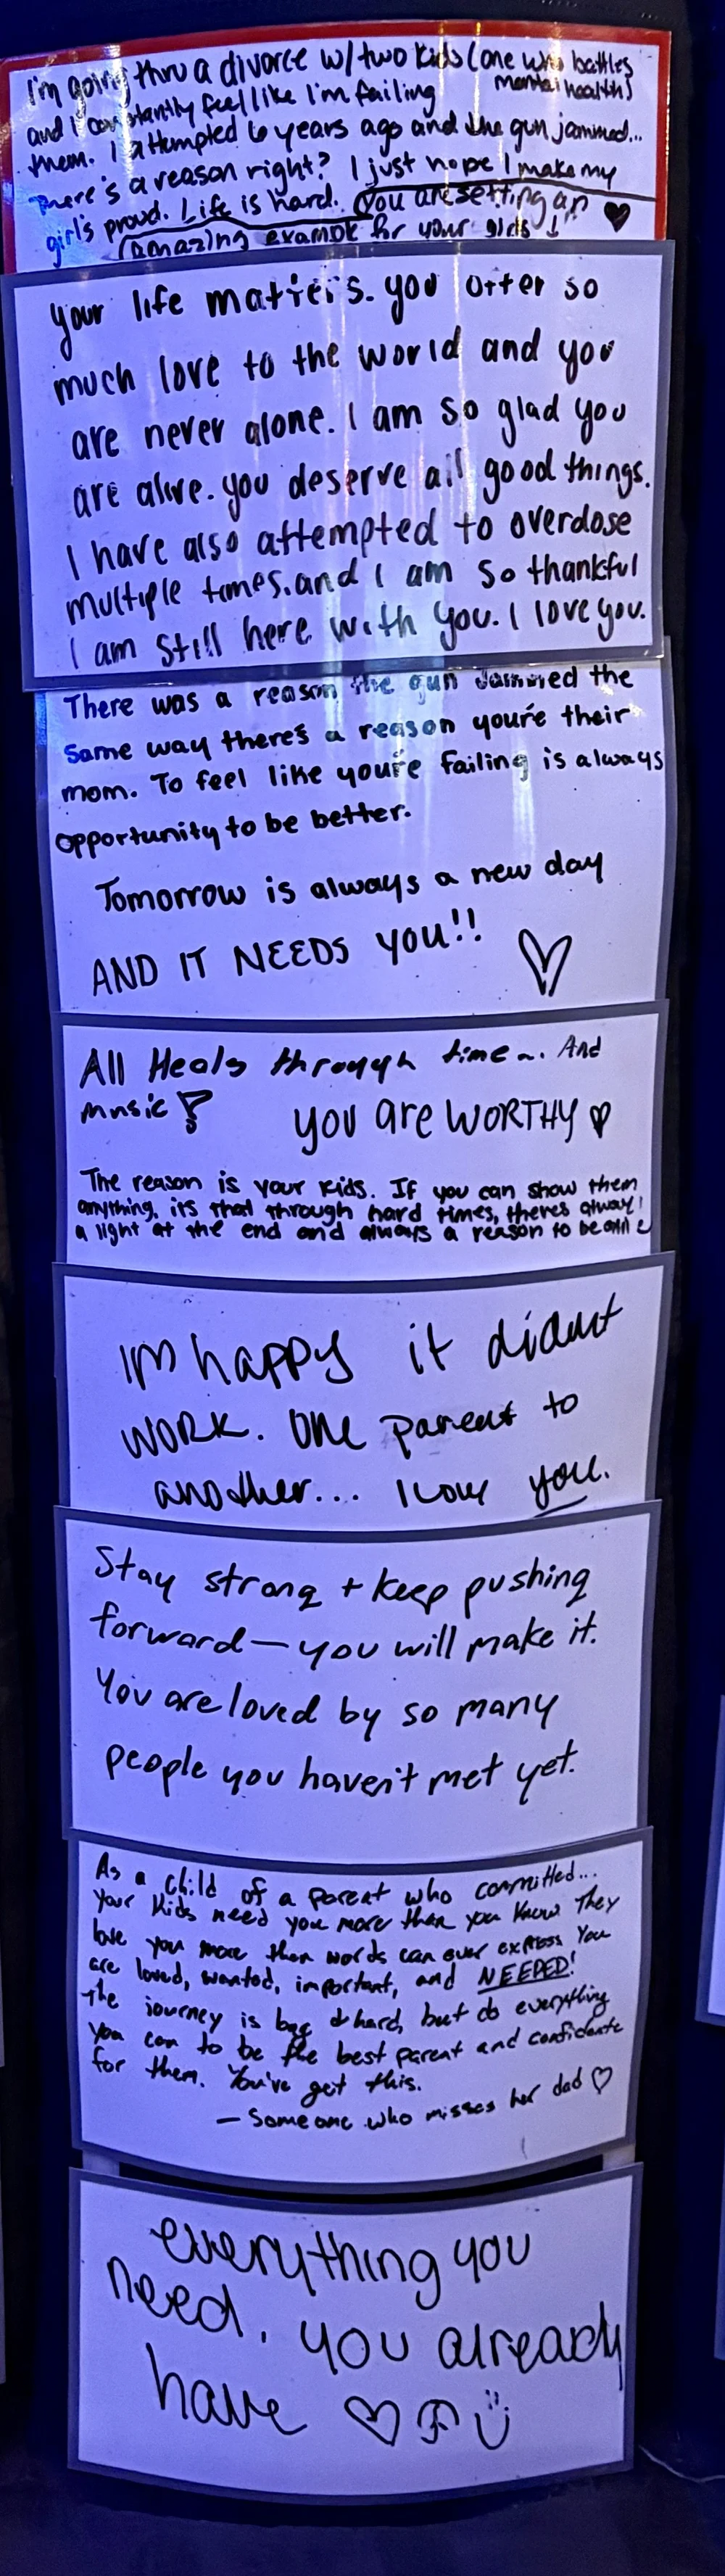 I'm going thru a divorce w/ two kids (one who battles
mental health)
and I constantly feel like I'm failing
them. I attempted 6 years ago and the gun jammed...
There's a reason right? I just hope I make my
girl's proud. Life is hard. You are setting an
amazing example for your girls ↓ ♥
your life matters. you offer so
much love to the world and you
are never alone. I am so glad you
are alive. you deserve all good things.
I have also attempted to overdose
multiple times. and I am so thankful
I am still here with you. I love you.
There was a reason the gun jammed the
same way there's a reason you're their
mom. To feel like you're failing is always
opportunity to be better.
Tomorrow is always a new day
AND IT NEEDS YOU!! ♡
All Heals through time~. And
music!
you are WORTHY ♡
The reason is your kids. If you can show them
anything, its that through hard times, theres always
a light at the end and always a reason to be alive
I'm happy it didnt
WORK. One parent to
another... I love you.
Stay strong + keep pushing
forward — you will make it.
You are loved by so many
people you haven't met yet.
As a child of a parent who committed...
your kids need you more than you know They
love you more then words can ever express You
are loved, wanted, important, and NEEDED!
The journey is big & hard, but do everything
you can to be the best parent and confidante
for them. You've got this.
— Someone who misses her dad ♡
everything you
need, you already
have ♡ ☮ ü